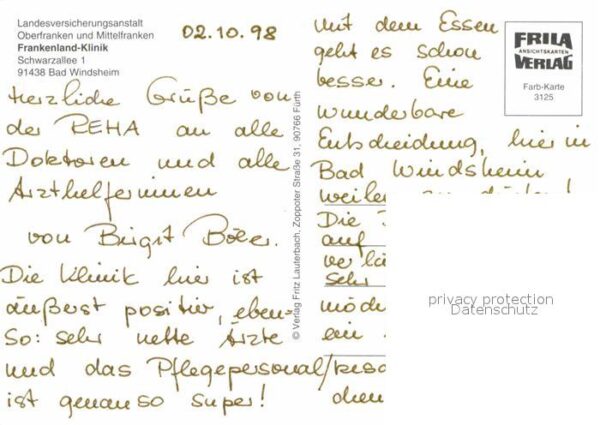 Landesversicherungsanstalt
Oberfranken und Mittelfranken
Frankenland-Klinik
Schwarzallee 1
91438 Bad Windsheim
02.10.98
Herzliche Grüße von
der REHA an alle
Doktoren und alle
Arzthelferinnen
von Birgit
Die Klinik hier ist
äußerst positiv, eben-
so: sehr nette Ärzte
und das Pflegepersonal/
ist genauso super!
© Verlag Fritz Lauterbach, Zoppoter Straße 31, 90766 Fürth
mit dem Essen
geht es schon
besser. Eine
wunderbare
Entscheidung, hier in
Bad Windsheim
weilen
Die
auf
sehr
ein
FRILA
ANSICHTSKARTEN
VERLAG
Farb-Karte
3125
privacy protection
Datenschutz